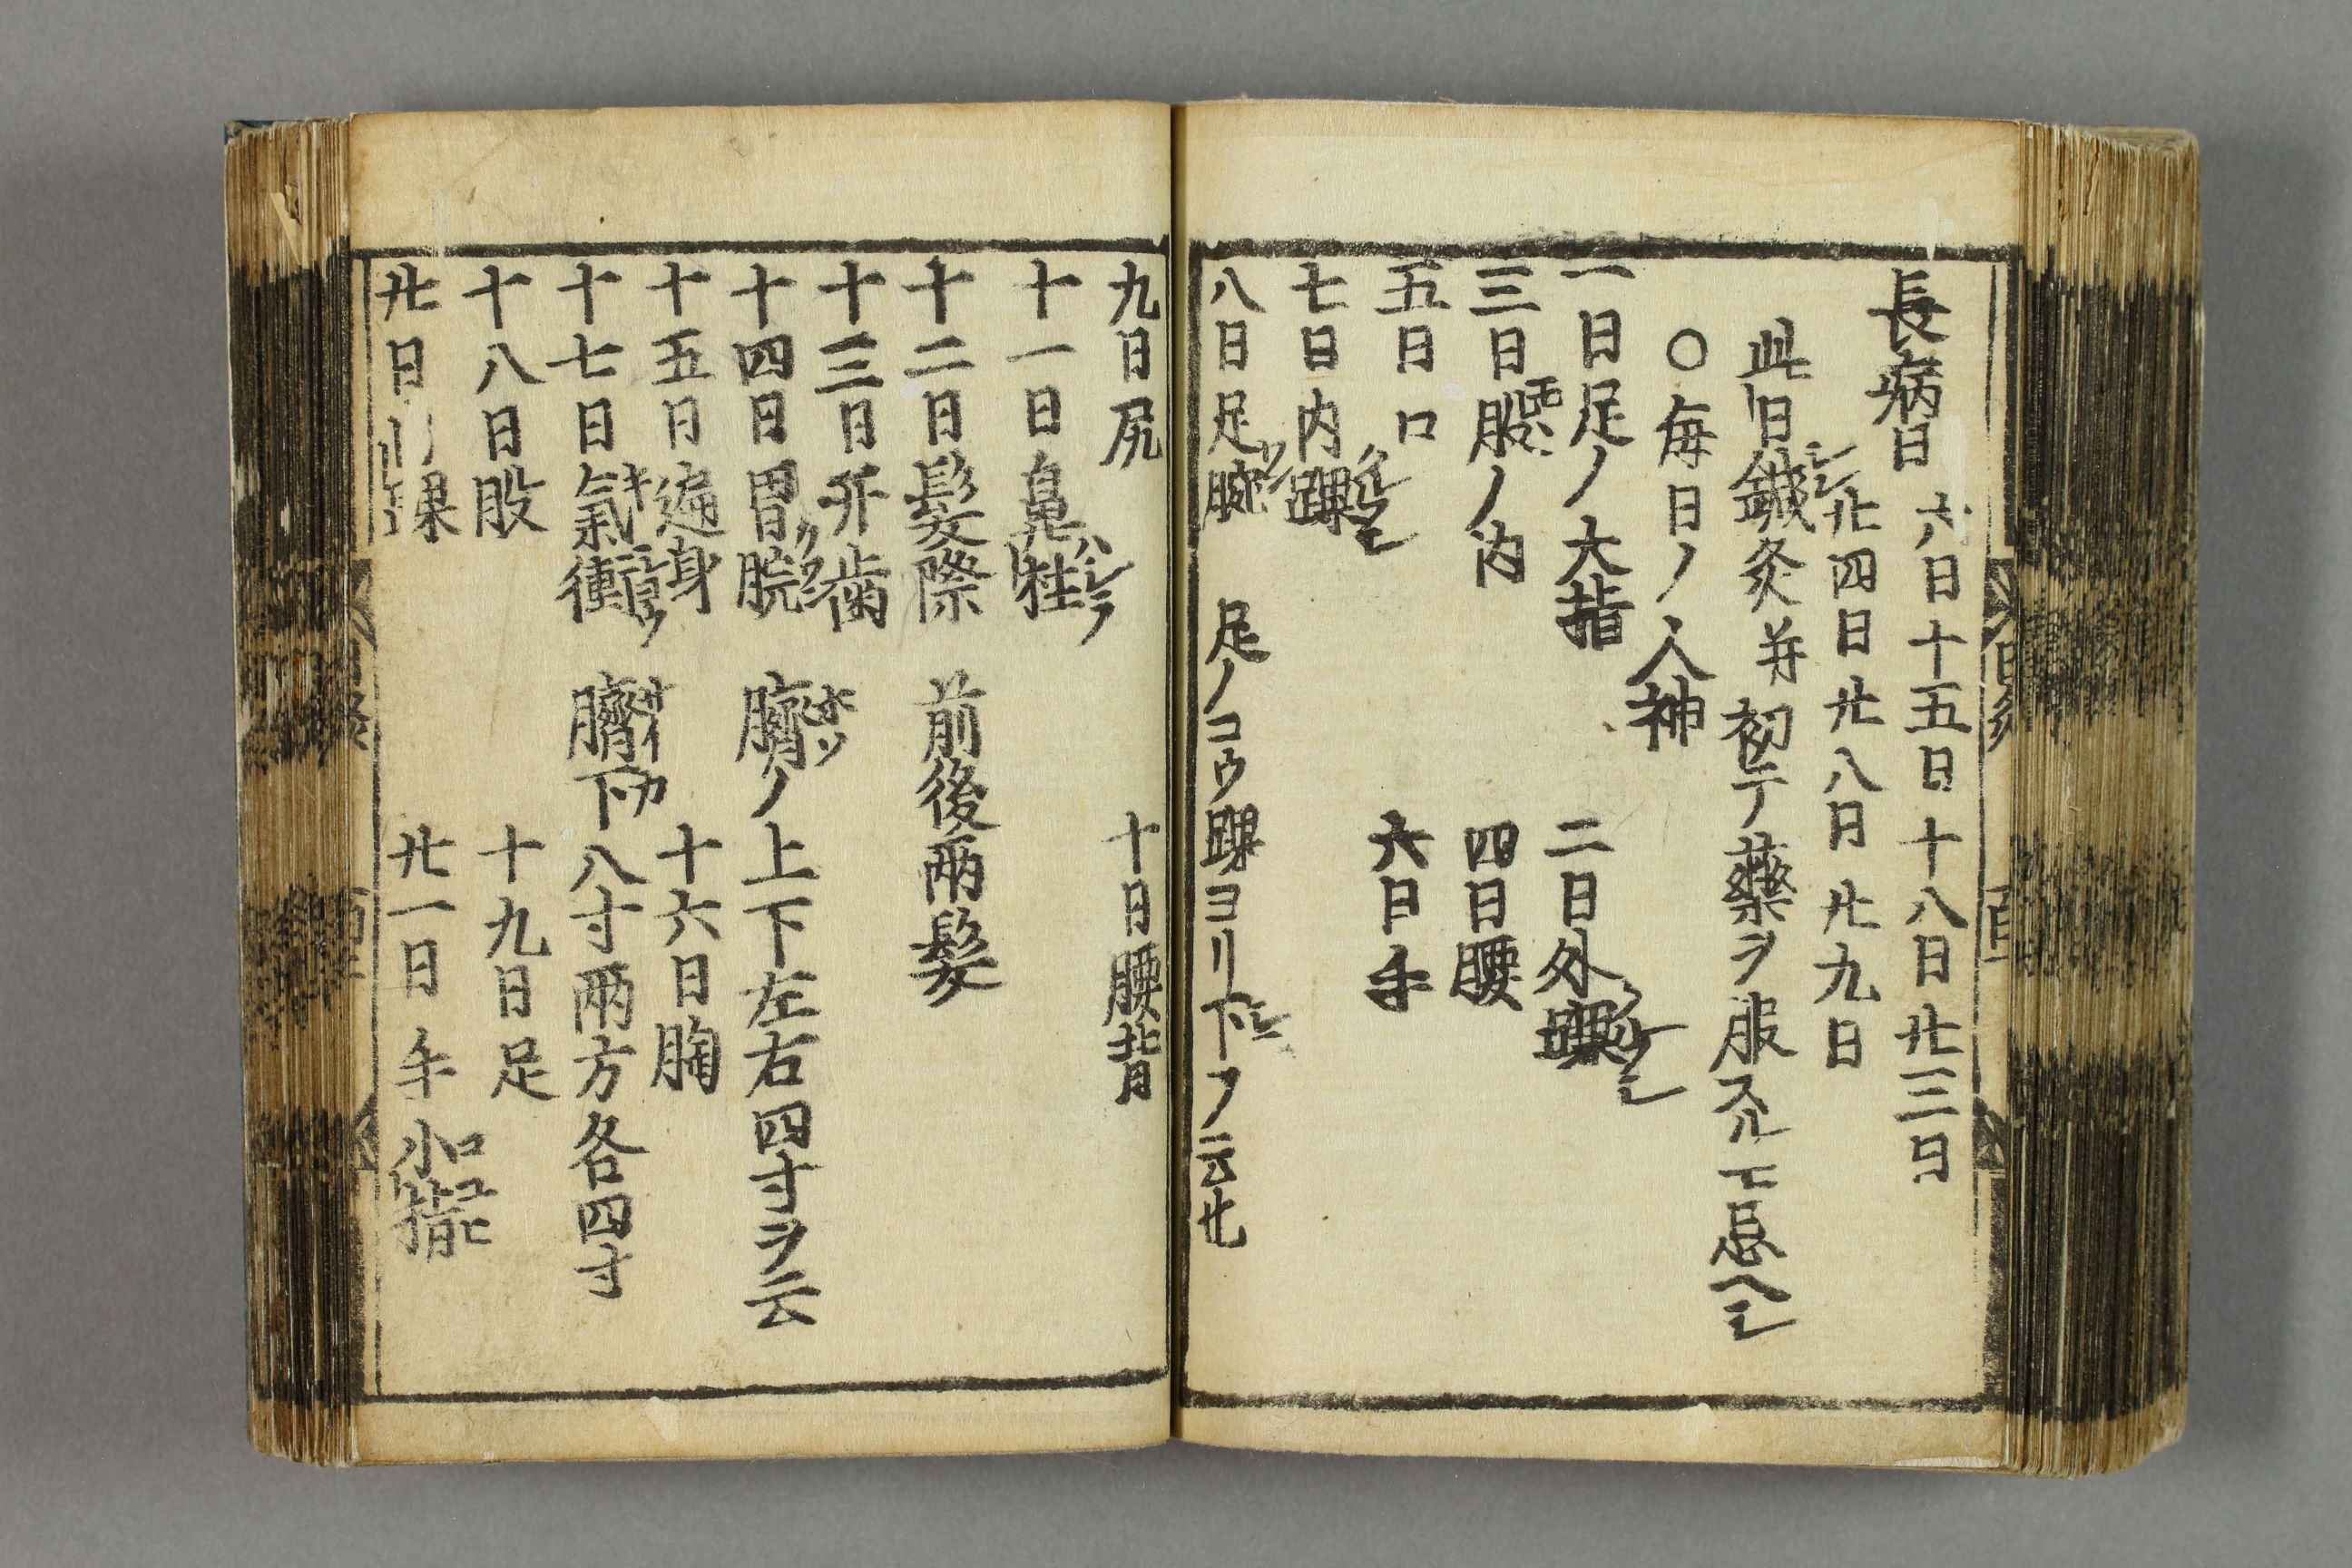 長病日 六日十五日十八日廿三日
廿四日廿八日廿九日
此日鍼灸并初テ藥ヲ服スルヿ忌ヘシ
〇毎日ノ人神
一日足ノ大指 二日外踝
三日股ノ内 四日腰
五日口 六日手
七日内踝
八日足腕 足ノコウ踝ヨリ下ヲ云也
九日尻 十日腰背
十一日鼻柱
十二日髪際 前後兩髪
十三日牙歯
十四日胃脘 臍ノ上下左右四寸ヲ云
十五日遍身 十六日胸
十七日氣衝 臍下八寸兩方各四寸
十八日股 十九日足
廿日 踝 廿一日手小指